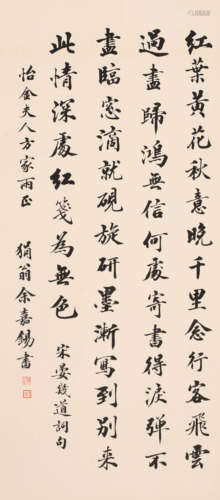 紅葉黃花秋意晚千里念行客飛雲
過盡歸鴻無信何處寄書得淚彈不
盡臨窓滴就硯旋研墨漸寫到別來
此情深處紅箋為無色
宋晏幾道詞句
怡金夫人方家雨正
狷翁余嘉錫書